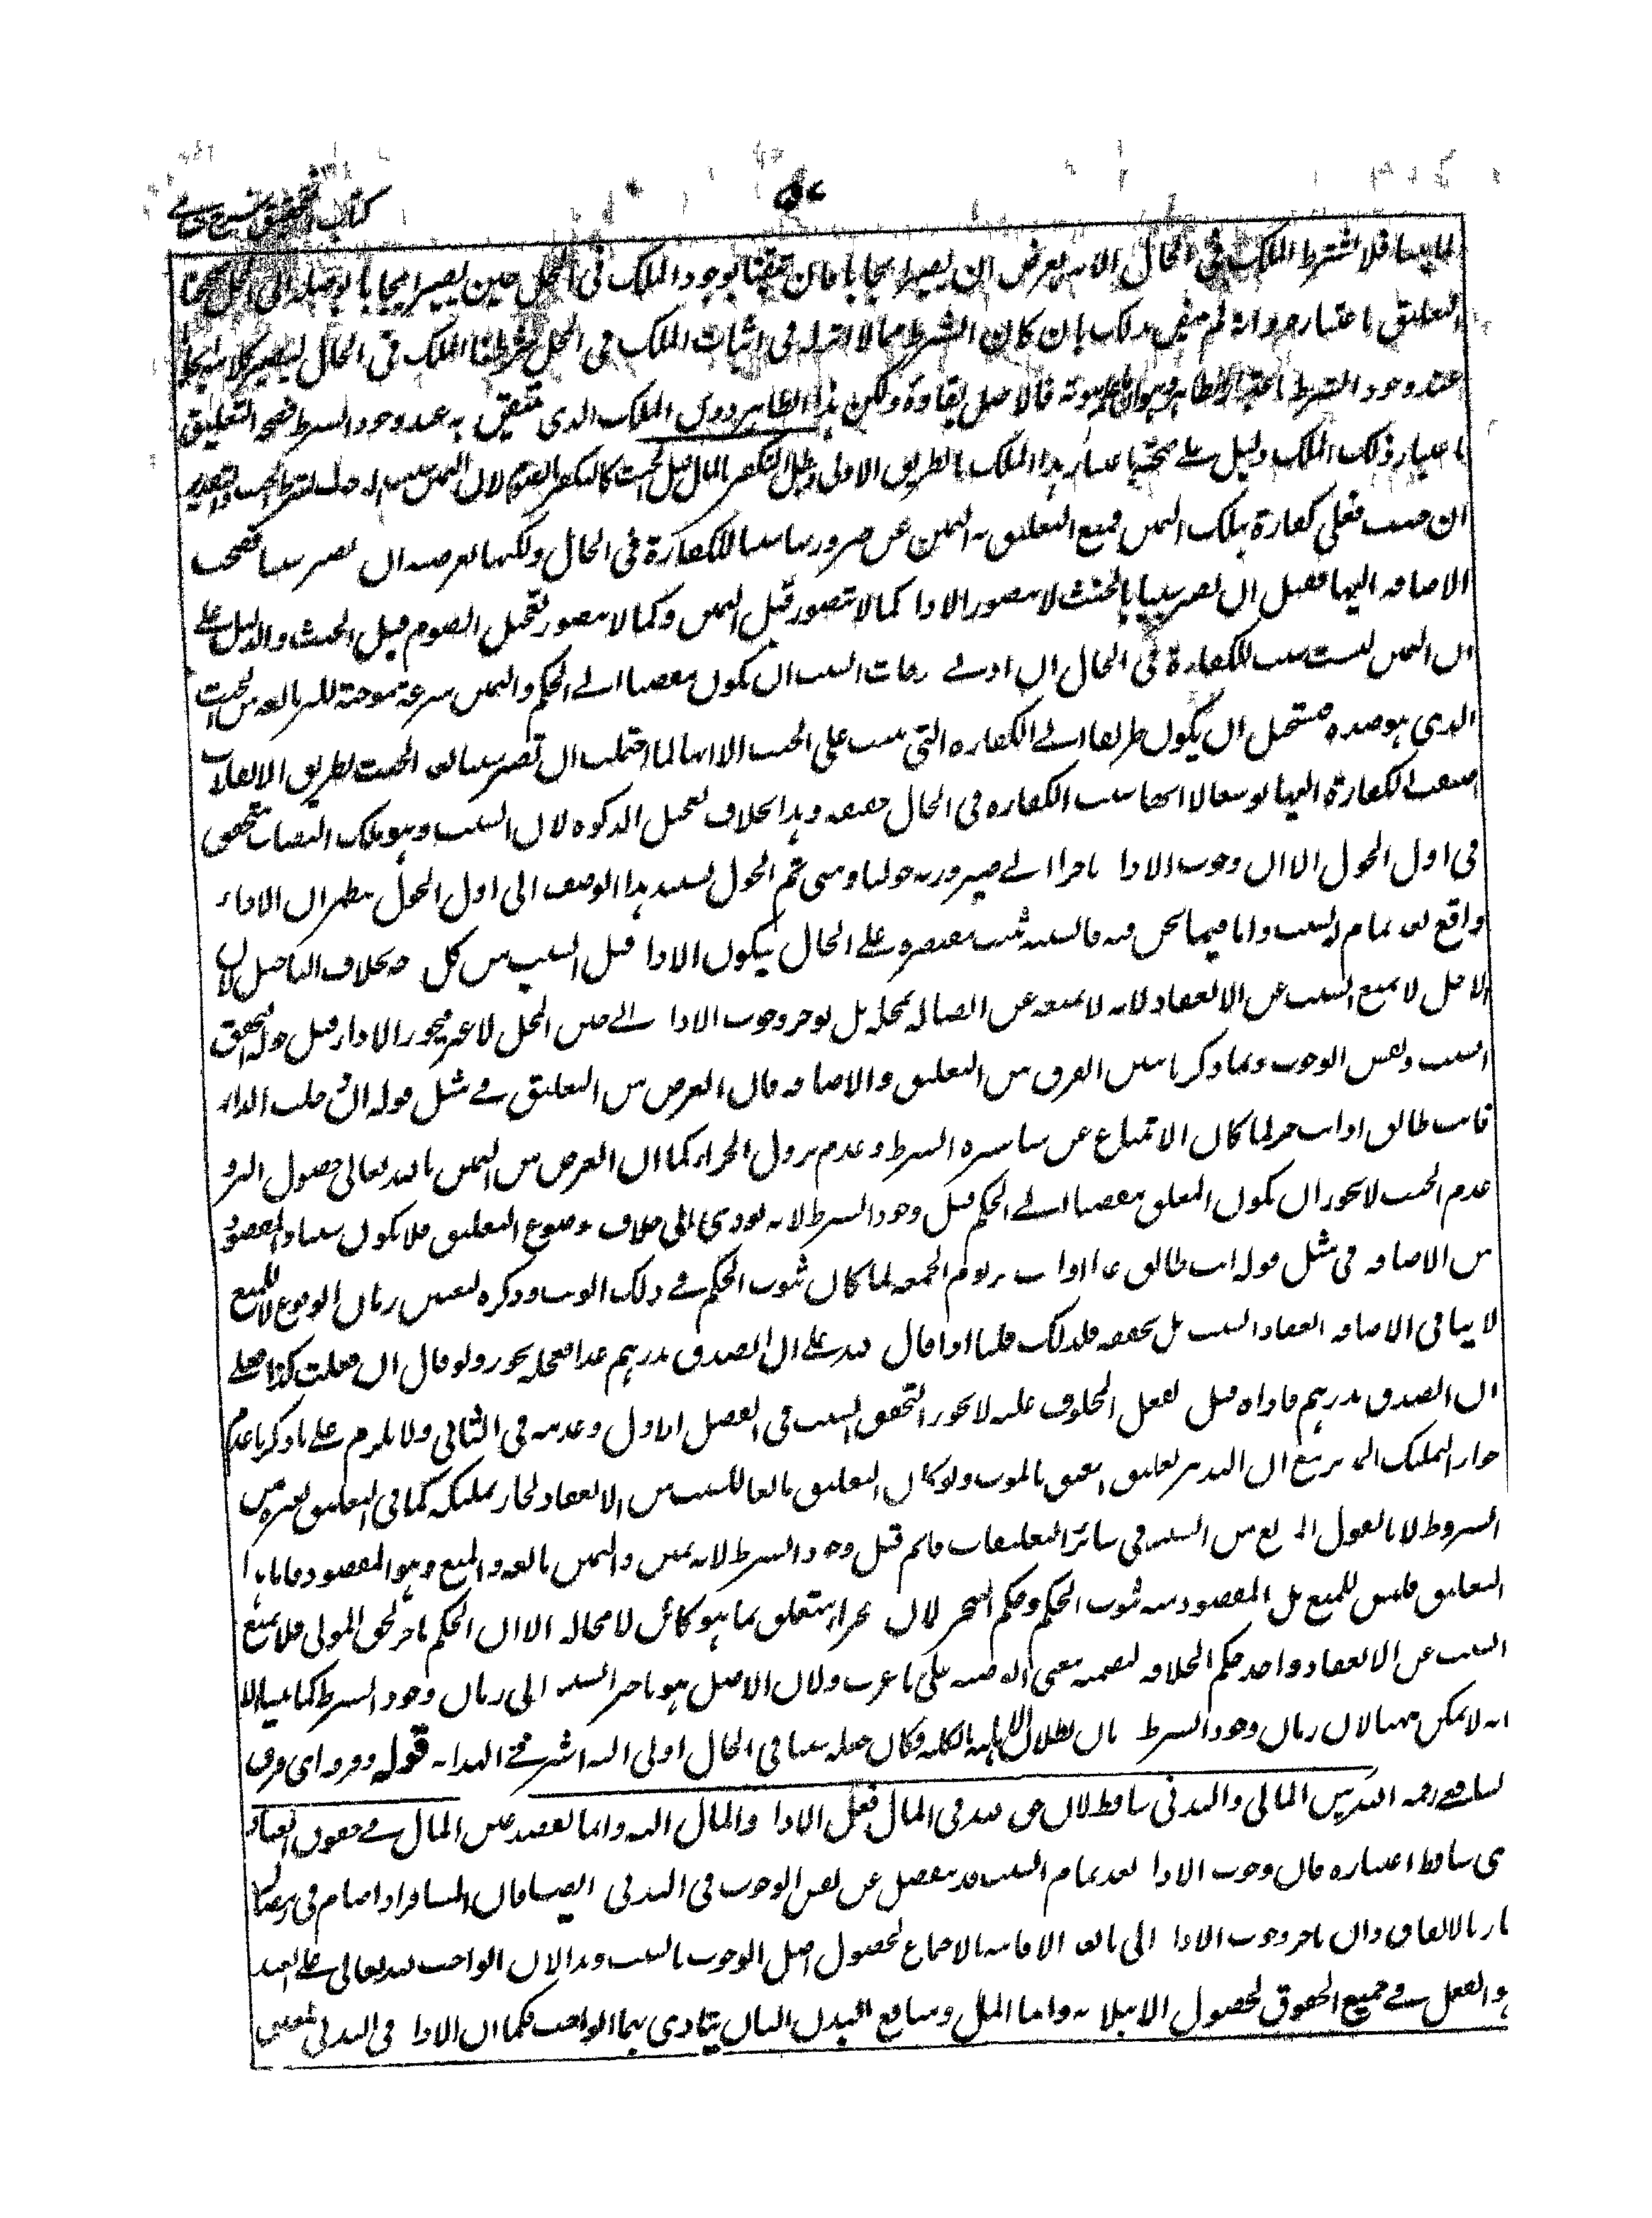 كتاب التحقيق
فلا يشترط الملك في الحال الا انه يعرض ان يصير ايجابا فان تيقنا بوجود الملك في المحل حين يصير ايجابا بوصوله الى المحل صححنا
التعليق باعتباره وانه لم يتيقن بذلك بان كان الشرط مما لا اثر له في اثبات الملك في المحل شرطنا الملك في الحال ليصير كلامه ايجابا
عند وجود الشرط باعتبار الظاهر وهو ان ما علم ثبوته فالاصل بقاؤه ولكن هذا الظاهر دون الملك الذي متيقن به عند وجود الشرط فصحة التعليق
باعتبار ذلك الملك دليل على صحته باعتبار هذا الملك بالطريق الاولى وبطل التكفير بالمال قبل الحنث كالتكفير بالصوم لان اليمين
ان حنثت فعلي كفارة بتلك اليمين فمنع التعليق به اليمين عن صيرورتها سببا للكفارة في الحال ولكنها بعرضة ان تصير سببا فصحت
الاضافة اليها فقبل ان تصير سببا بالحنث لا يتصور الاداء كما لا يتصور قبل اليمين وكما لا يتصور تعجيل الصوم قبل الحنث والدليل على
ان اليمين ليست بسبب للكفارة في الحال ان ادنى درجات السبب ان يكون مفضيا الى الحكم واليمين شرعت موجبة للبر مانعة من الحنث
الذي هو ضده فيستحيل ان يكون طريقا الى الكفارة التي تجب على الحنث الا انها لما احتملت ان تصير سببا بعد الحنث بطريق الانقلاب
اضيفت الكفارة اليها توسعا لا انها سبب الكفارة في الحال حقيقة وهذا بخلاف تعجيل الزكوة لان السبب وهو ملك النصاب متحقق
في اول الحول الا ان وجوب الاداء تاخر الى صيرورته حوليا ومتى تم الحول يستند هذا الوصف الى اول الحول فظهر ان الاداء
واقع بعد تمام السبب واما فيما نحن فيه فالسببية تثبت مقتصرة على الحال فيكون الاداء قبل السبب من كل وجه بخلاف التاجيل لان
الاجل لا يمنع السبب عن الانعقاد لانه لا يمنعه عن اتصاله بمحله بل يؤخر وجوب الاداء الى حين المحل لا غير فيجوز الاداء قبل حوله لتحقق
السبب ونفس الوجوب وبما ذكرنا تبين الفرق بين التعليق والاضافة فان الغرض من التعليق في مثل قوله ان دخلت الدار
فانت طالق او انت حر لما كان الامتناع عن مباشرة الشرط وعدم نزول الجزاء كما ان الغرض من اليمين بالله تعالى حصول البر و
عدم الحنث لا يجوز ان يكون المعلق مفضيا الى الحكم قبل وجود الشرط لانه يؤدي الى خلاف موضوع التعليق فلا يكون سببا والمقصود
من الاضافة في مثل قوله انت طالق غدا او انت حر يوم الجمعة لما كان ثبوت الحكم في ذلك الوقت وذكره لتعيين زمان الوقوع لا للمنع
لا ينافي الاضافة انعقاد السبب بل تحققه فلذلك قلنا اذا قال لله علي ان اتصدق بدرهم غدا فعجله يجوز ولو قال ان فعلت كذا فعلي
ان اتصدق بدرهم فاداه قبل الفعل المحلوف عليه لا يجوز لتحقق السبب في الفصل الاول وعدمه في الثاني ولا يلزم على ما ذكرنا عدم
جواز تمليك المدبر مع ان التدبير تعليق العتق بالموت ولو كان التعليق مانعا للسبب من الانعقاد لجاز تمليكه كما في التعليق بغيره من
الشروط لانا نقول المانع من السببية في سائر التعليقات قائم قبل وجود الشرط لانه يمين واليمين مانعة والمنع هو المقصود فاما هذا
التعليق فليس للمنع بل المقصود منه ثبوت الحكم وحكم التنجيز لان الجزاء يتعلق بما هو كائن لا محالة الا ان الحكم تاخر لحق المولى فلا يمنع
السبب عن الانعقاد واخذ حكم الخلافة لتضمنه معنى الوصية على ما عرف ولان الاصل هو تاخر السببية الى زمان وجود الشرط كما بينا الا
انه لا يمكن ههنا لان زمان وجود الشرط زمان بطلان الاهلية بالكلية فكان جعله سببا في الحال اولى اليه اشير في الهداية قوله وفرقه اي فرق
الشافعي رحمه الله بين المالي والبدني ساقط لان حق الله في المال فعل الاداء والمال آلته وانما يقصد عين المال في حقوق العباد
ي ساقط اعتباره فان وجوب الاداء بعد تمام السبب قد ينفصل عن نفس الوجوب في البدني ايضا فان المسافر اذا صام في رمضان
جاز بالاتفاق وان تاخر وجوب الاداء الى ما بعد الاقامة بالاجماع لحصول اصل الوجوب بالسبب وهذا لان الواجب لله تعالى على العبد
هو الفعل في جميع الحقوق لحصول الابتلاء به واما المال ومنافع البدن اللذان يتادى بهما الواجب فكما ان الاداء في البدني